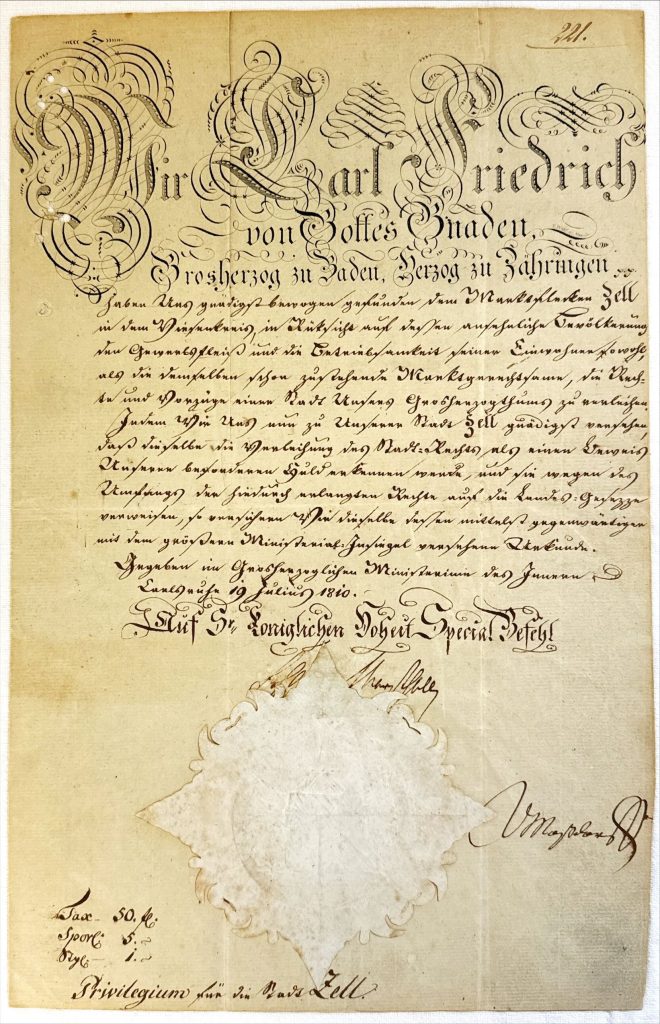 221.
Wir Carl Friedrich
von Gottes Gnaden,
Grosherzog zu Baden, Herzog zu Zähringen
haben Uns gnädigst bewogen gefunden dem Marktflecken Zell
in dem Wiesenkreis, in Rücksicht auf dessen ansehnliche Bevölkerung,
den Gewerbsfleiß und die Betriebsamkeit seiner Einwohner sowohl,
als die demselben schon zustehende Marktgerechtsame, die Rech-
te und Vorzüge einer Stadt Unsers Grosherzogthums zu verleihen.
Indem Wir Uns nun zu Unserer Stadt Zell gnädigst versehen,
daß dieselbe die Verleihung des Stadt-Rechts als einen Beweis
Unserer besonderen Huld erkennen werde, und sie wegen des
Umfangs der hiedurch erlangten Rechte auf die Landes-Gesezze
verweisen, so versichern Wir dieselbe dessen mittelst gegenwärtiger
mit dem größern Ministerial-Insiegel versehene Urkunde.
Gegeben im Grosherzoglichen Ministerium des Innern
Carlsruhe 19 Julius 1810.
Auf Sr. Königlichen Hoheit Special Befehl
Tax 50. fl.
Sport. 5.
1.
Privilegium für die Stadt Zell.